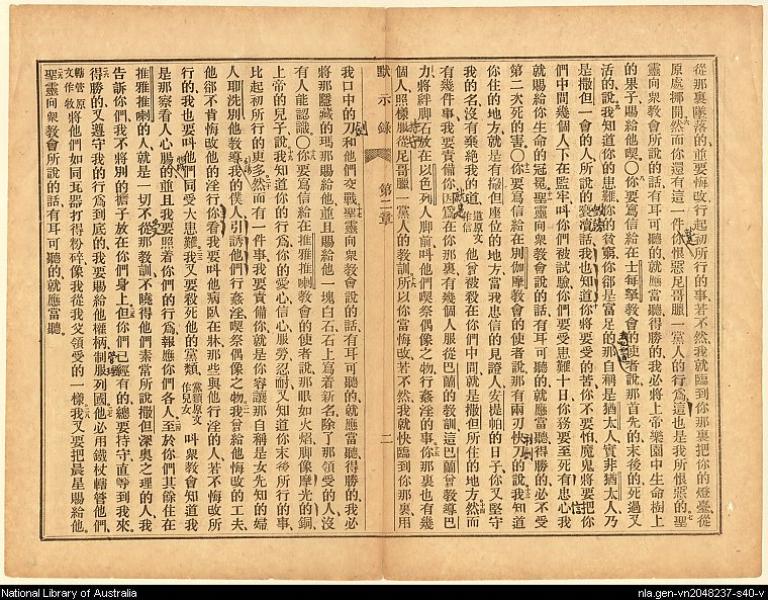 從那裏墜落的、重要悔改、行起初所行的事、若不然、我就臨到你那裏把你的燈臺從
原處挪開、然而你還有這一件、你恨惡尼哥臘一黨人的行爲、這也是我所恨惡的、聖
靈向衆教會所說的話、有耳可聽的、就應當聽、得勝的、我必將上帝樂園中生命樹上
的果子、賜給他喫、〇你要寫信給在士每拏教會的使者說、那首先的末後的、死過又
活的說、我知道你的患難、你的貧窮、你卻是富足的、那自稱是猶太人、實非猶太人、乃
是撒但一會的人、所說的褻瀆話、我也知道、你將要受的苦、你不要怕、魔鬼將要把你
們中間幾個人下在監牢、叫你們被試驗、你們要受患難十日、你務要至死有忠心、我
就賜給你生命的冠冕、聖靈向衆教會說的話、有耳可聽的、就應當聽、得勝的、必不受
第二次死的害、〇你要寫信給在別伽摩教會的使者說、那有兩刃快刀的說、我知道
你住的地方、就是有撒但座位的地方、當我忠信的見證人安提帕的日子、你又堅守
我的名、沒有棄絕我的道、道原文作信 他曾被殺在你們中間、就是撒但所住的地方、然而
有幾件事、我要責備你、因爲在你那裏、有幾個人服從巴蘭的教訓、這巴蘭曾教導巴
力將絆脚石放在以色列人脚前、叫他們喫祭偶像之物、行姦淫的事、你那裏也有幾
個人照樣服從尼哥臘一黨人的教訓、所以你當悔改、若不然、我就快臨到你那裏、用
默示錄 第二章 二
我口中的刀、和他們交戰、聖靈向衆教會說的話、有耳可聽的、就應當聽、得勝的、我必
將那隱藏的瑪那賜給他、並且賜給他一塊白石、石上寫着新名、除了那領受的人、沒
有人能認識、〇你要寫信給在推雅推喇教會的使者說、那眼如火熖、脚像摩光的銅、
上帝的兒子說、我知道你的行爲、你的愛心、信心、服勞、忍耐、又知道你末後所行的事、
比起初所行的更多、然而有一件事、我要責備你、就是你容讓那自稱是女先知的婦
人耶洗別、他教導我的僕人、引誘他們行姦淫、喫祭偶像之物、我曾給他悔改的工夫、
他卻不肯悔改他的淫行、你看我要叫他病臥在牀、那些與他行淫的人、若不悔改所
行的、我也要叫他們同受大患難、我又要殺死他的黨類、黨類原文作兒女 叫衆教會知道我
是那察看人心腸的、並且我要照着你們的行爲、報應你們各人、至於你們其餘住在
推雅推喇的人、就是一切不從那教訓、不曉得他們素常所說撒但深奧之理的人、我
告訴你們、我不將別的擔子放在你們身上、但你們已經有的、總要持守、直等到我來、
得勝的、又遵守我的行爲到底的、我要賜給他權柄、制服列國、他必用鐵杖轄管他們、
轄管原文作牧 將他們如同瓦器打得粉碎、像我從我父領受的一樣、我又要把晨星賜給他、
聖靈向衆教會所說的話、有耳可聽的、就應當聽、
National Library of Australia
nla.gen-vn2048237-s40-v